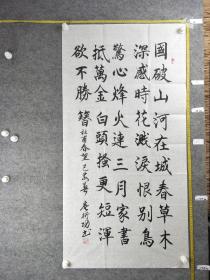 國破山河在城春草木
深感時花濺淚恨別鳥
驚心烽火連三月家書
抵萬金白頭搔更短渾
欲不勝簪 杜甫春望